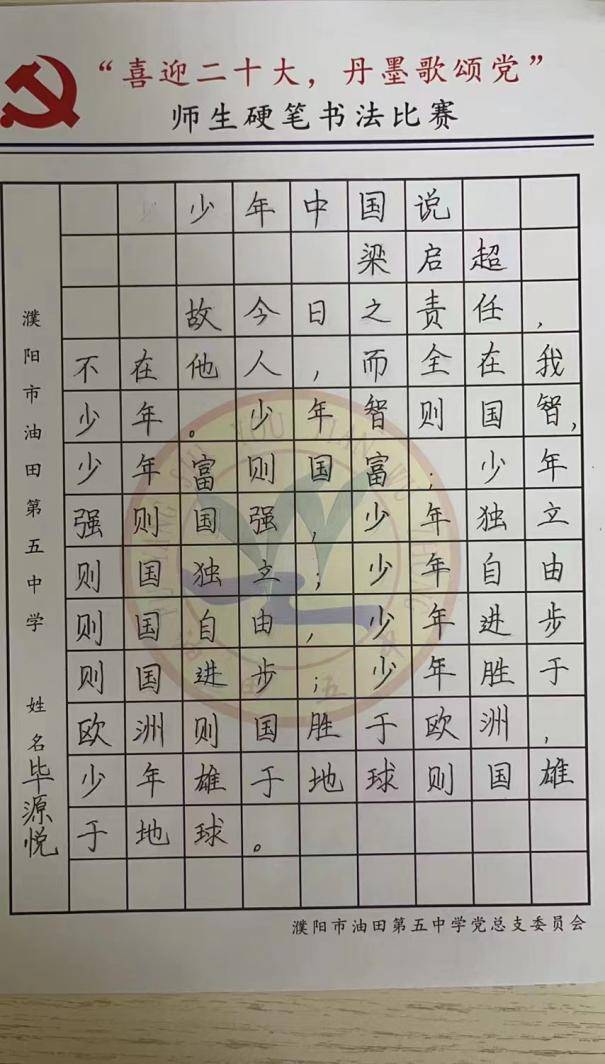 “喜迎二十大，丹墨歌颂党”
师生硬笔书法比赛
少年中国说
梁启超
故今日之责任，
不在他人，而全在我
少年。少年智则国智，
少年富则国富；少年
强则国强，少年独立
则国独立；少年自由
则国自由，少年进步
则国进步；少年胜于
欧洲则国胜于欧洲，
少年雄于地球则国雄
于地球。
濮阳市油田第五中学
姓名毕源悦
濮阳市油田第五中学党总支委员会